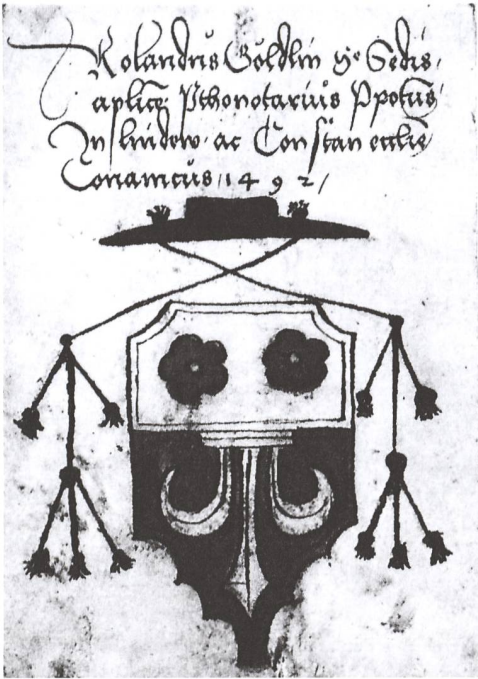 Rolandus Göldlin ye Sedis,
aplice Pthonotarius Ppotus
In lindow ac Constan ecclie
Conanicus 1492